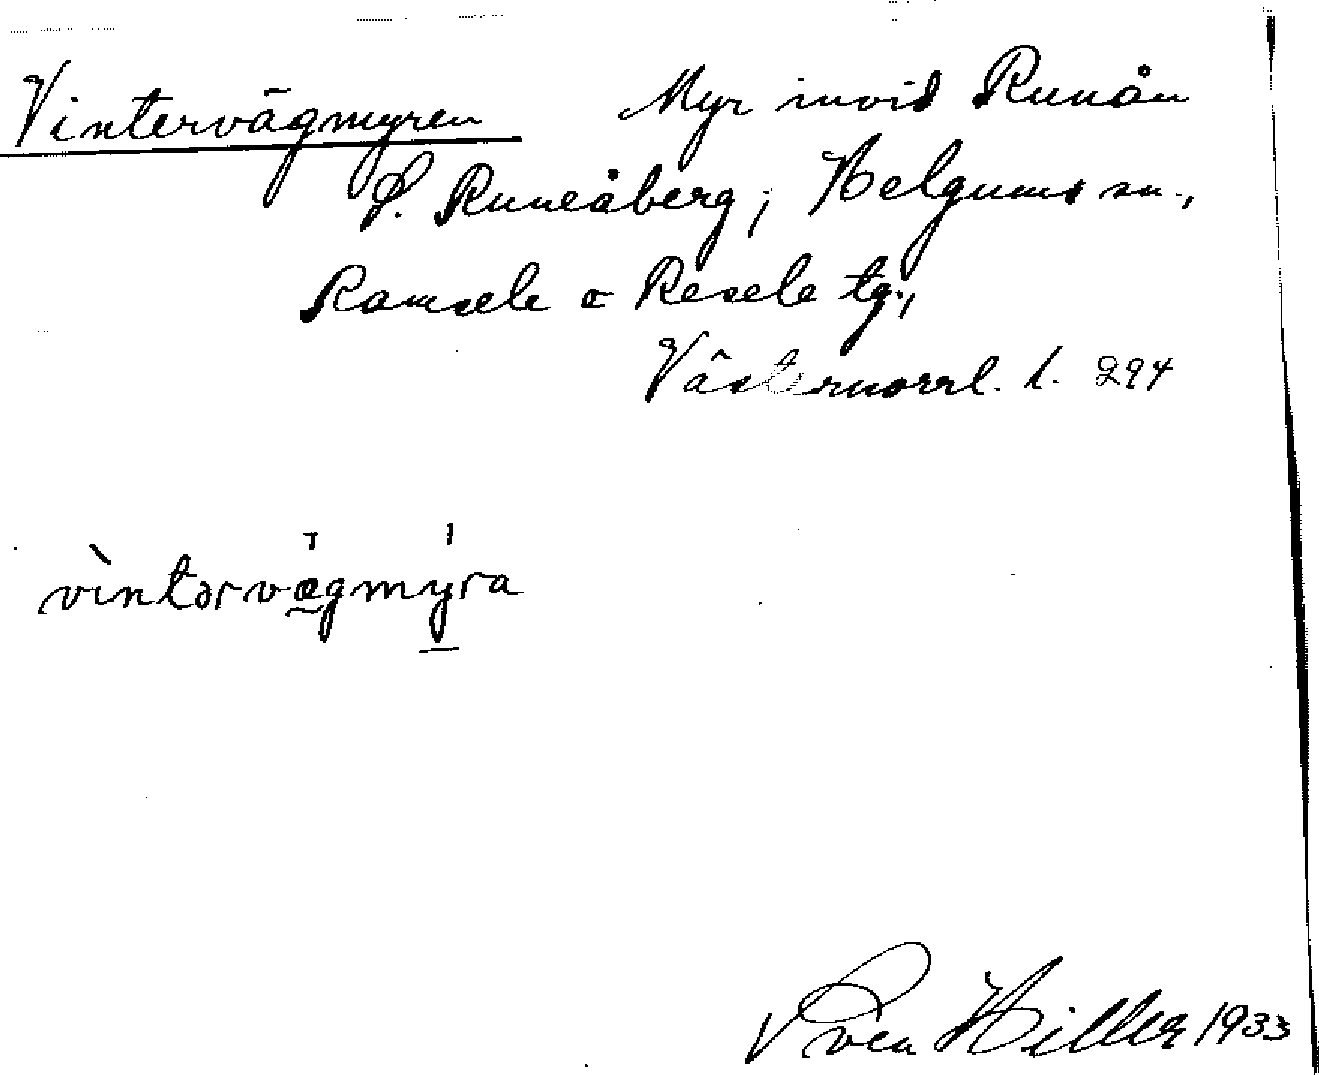 Vintervägmyren Myr invid Runån
S. Runeåberg; Helgums sn.,
Ramsele o Resele tg.,
Västernorrl. l. 294
vìntərvægmyra
Sven Hiller 1933